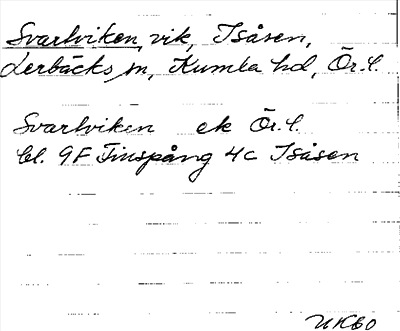 Svartviken, vik, Isåsen,
Lerbäcks sn, Kumla hd, Ör. l.
Svartviken ek Ör. l.
bl. 9F Finspång 4c Isåsen
UKBO